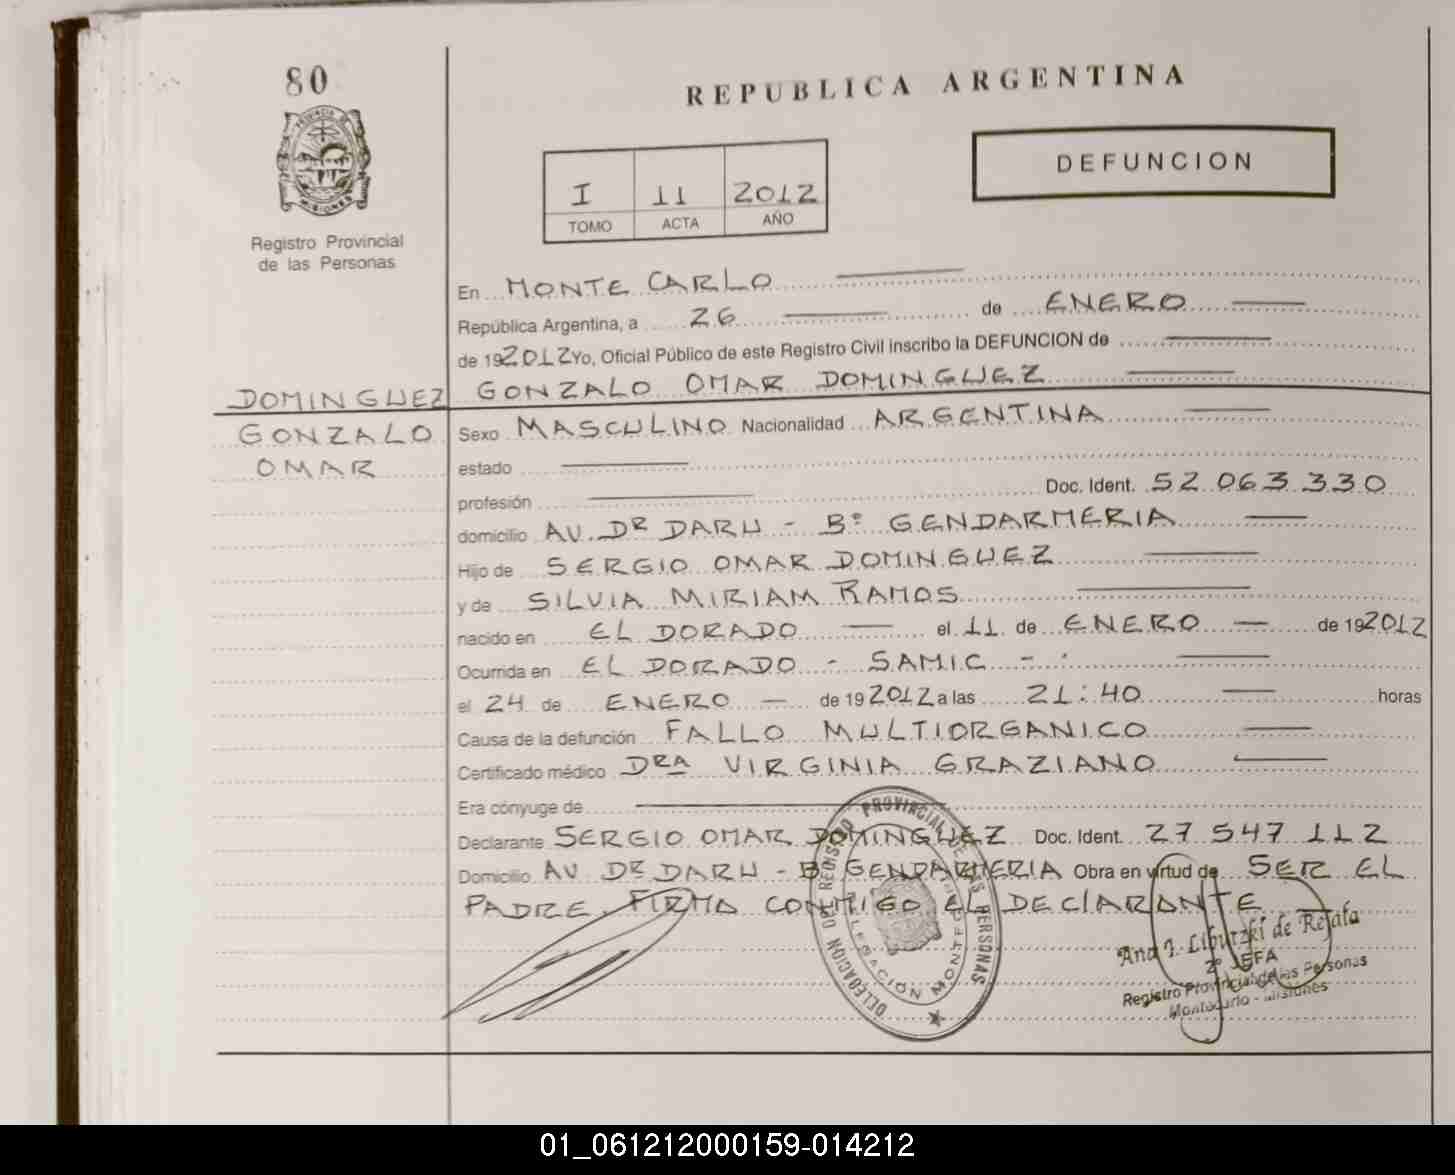 80
REPUBLICA ARGENTINA
PROVINCIA DE MISIONES
Registro Provincial
de las Personas
I 11 2012
TOMO ACTA AÑO
DEFUNCION
En MONTE CARLO
República Argentina, a 26 de ENERO
de 192012 Yo, Oficial Público de este Registro Civil inscribo la DEFUNCION de
DOMINGUEZ
GONZALO
OMAR
GONZALO OMAR DOMINGUEZ
Sexo MASCULINO Nacionalidad ARGENTINA
estado
profesión Doc. Ident. 52 063 330
domicilio AV. DR DARU - Bº GENDARMERIA
Hijo de SERGIO OMAR DOMINGUEZ
y de SILVIA MIRIAM RAMOS
nacido en EL DORADO el 11 de ENERO de 192012
Ocurrida en EL DORADO - SAMIC -
el 24 de ENERO de 192012 a las 21:40 horas
Causa de la defunción FALLO MULTIORGANICO
Certificado médico DRA VIRGINIA GRAZIANO
Era cónyuge de
Declarante SERGIO OMAR DOMINGUEZ Doc. Ident. 27 547 112
Domicilio AV DR DARU - Bº GENDARMERIA Obra en virtud de SER EL
PADRE. FIRMA CONMIGO EL DEClARANTE
DELEGACION DEL REGISTRO PROVINCIAL DE LAS PERSONAS
Ana I. de
2º JEFA
Registro Provincial de las Personas
Montecarlo - Misiones
01_061212000159-014212